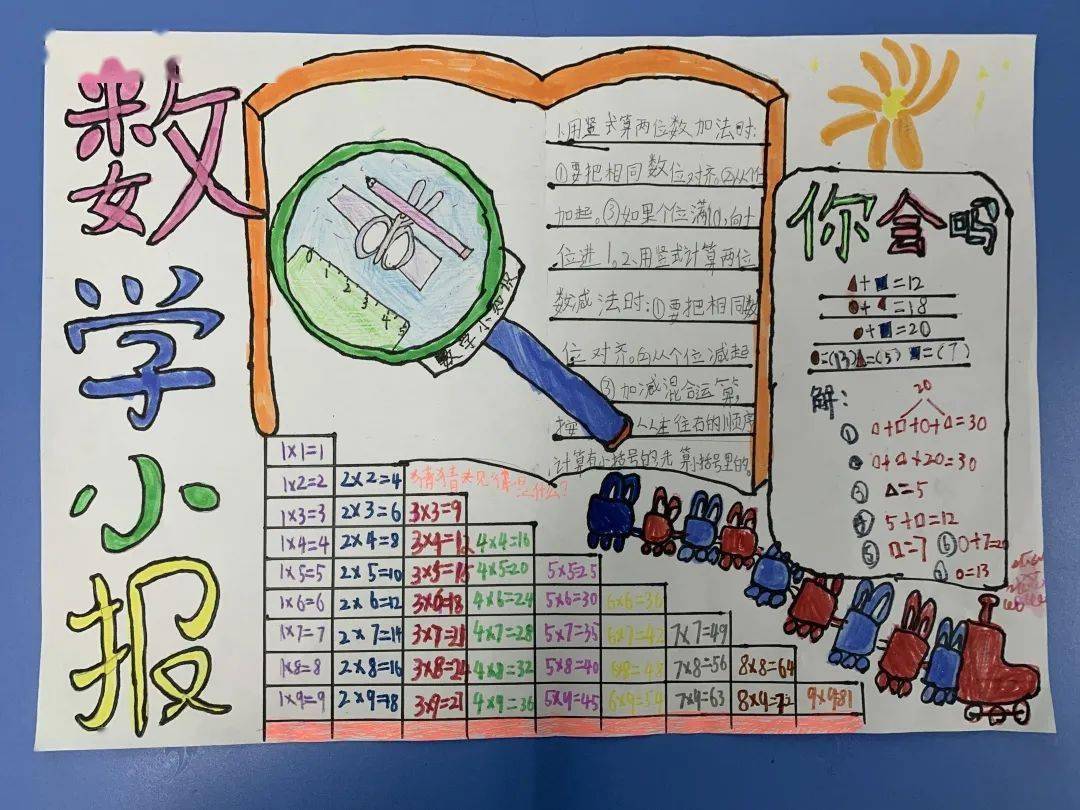 数学小报
数学小知识
1.用竖式算两位数加法时:
①要把相同数位对齐。②从个位
加起。③如果个位满10,向十
位进1。2.用竖式计算两位
数减法时:①要把相同数
位对齐。②从个位减起
③加减混合运算,
按 从左往右的顺序
计算有小括号的先算小括号里的。
0 1 2 3 4 5
你会吗
▲+■=12
●+▲=18
●+■=20
●=(13)▲=(5) ■=(7)
解:
20
① △+□+○+△=30
② △+△+20=30
③ △=5
④ 5+□=12
⑤ □=7 ⑥ ○+7=20
⑦ ○=13
猜猜
1×1=1
1×2=2 2×2=4
1×3=3 2×3=6 3×3=9
1×4=4 2×4=8 3×4=12 4×4=16
1×5=5 2×5=10 3×5=15 4×5=20 5×5=25
1×6=6 2×6=12 3×6=18 4×6=24 5×6=30 6×6=36
1×7=7 2×7=14 3×7=21 4×7=28 5×7=35 6×7=42 7×7=49
1×8=8 2×8=16 3×8=24 4×8=32 5×8=40 6×8=48 7×8=56 8×8=64
1×9=9 2×9=18 3×9=27 4×9=36 5×9=45 6×9=54 7×9=63 8×9=72 9×9=81